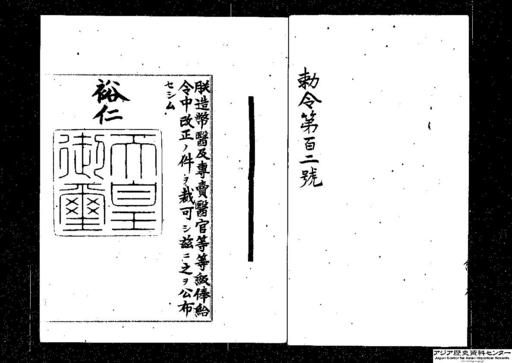 勅令第百二號
朕造幣醫及專賣醫官等等級俸給
令中改正ノ件ヲ裁可シ茲ニ之ヲ公布
セシム
裕仁
天皇
御璽
アジア歴史資料センター
Japan Center for Asian Historical Records